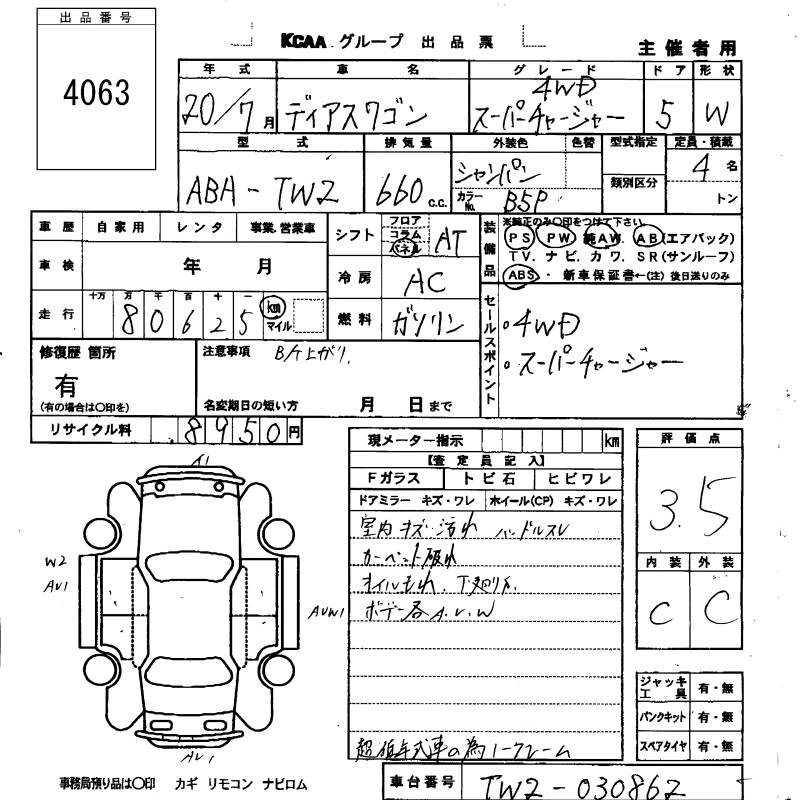 出品番号
4063
KCAA グループ 出品票
主催者用
年式 車名 グレード ドア 形状
20/7月 ディアスワゴン 4WD スーパーチャージャー 5 W
型式 排気量 外装色 色替 型式指定 定員・積載
ABA-TW2 660 c.c. シャンパン 4名
類別区分
カラーNo. B5P トン
車歴 自家用 レンタ 事業、営業車
車検 年 月
走行 十万 万 千 百 十 一 km マイル
8 0 6 2 5
シフト フロア コラム パネル AT
冷房 AC
燃料 ガソリン
装備品 ※純正のみ○印をつけて下さい
PS PW 純AW. AB(エアバック)
TV. ナビ. カワ. SR(サンルーフ)
ABS・ 新車保証書←(注) 後日送りのみ
セールスポイント
・4WD
・スーパーチャージャー
修復歴 箇所
有
(有の場合は○印を)
注意事項
名変期日の短い方 月 日まで
リサイクル料 8950円
現メーター指示 km
【査定員記入】
Fガラス トビ石 ヒビワレ
ドアミラー キズ・ワレ ホイール(CP) キズ・ワレ
室内キズ・汚れ ハンドルスレ
カーペット破れ
オイルもれ. 下廻りサ.
ボデー各A.U.W
超低年式車の為ノークレーム
評価点
3.5
内装 外装
C C
ジャッキ工具 有・無
パンクキット 有・無
スペアタイヤ 有・無
W2
AU1
AUW1
AU1
事務局預り品は○印 カギ リモコン ナビロム
車台番号 TW2-030862